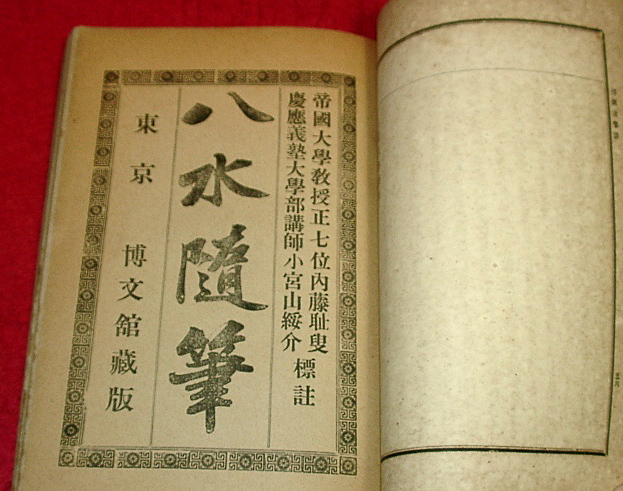 帝國大學敎授正七位內藤耻叟
慶應義塾大學部講師小宮山綏介
標註
八水隨筆
東京 博文舘藏版